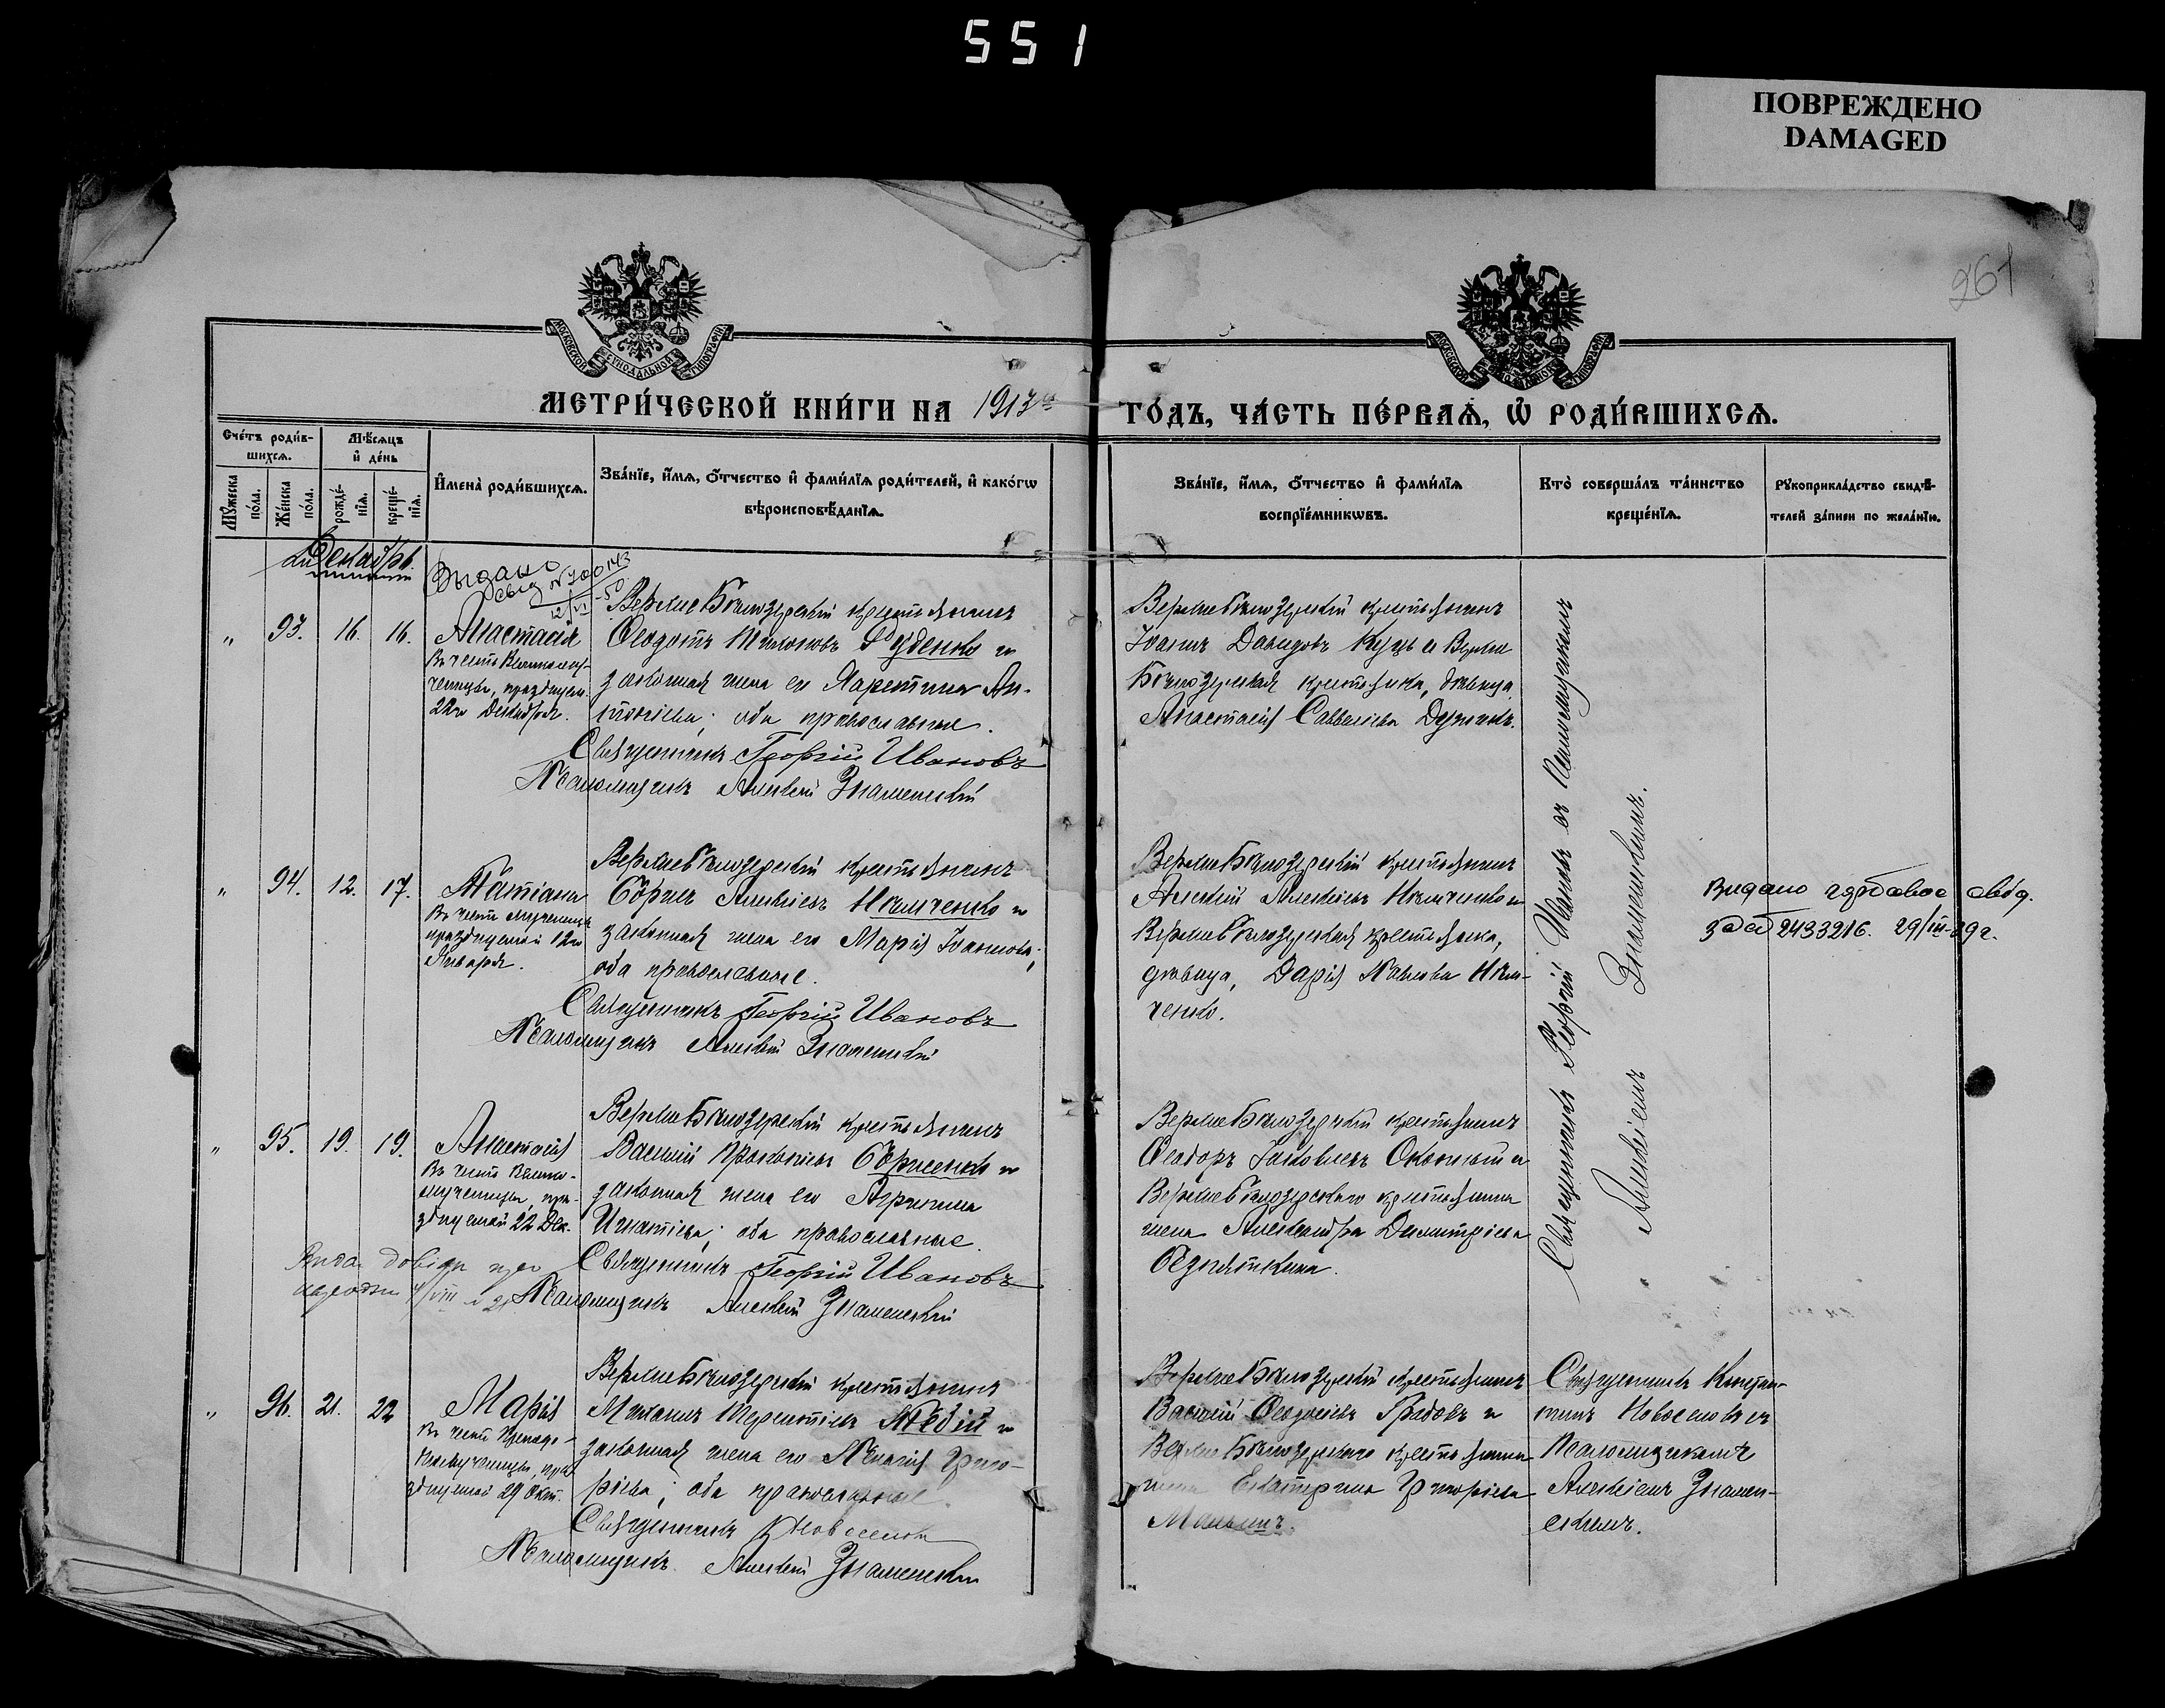 551
ПОВРЕЖДЕНО
DAMAGED
261
МОСКОВСКОЙ СУНОДАЛЬНОЙ ТИПОГРАФІИ
МОСКОВСКОЙ СУНОДАЛЬНОЙ ТИПОГРАФІИ
МЕТРИ́ЧЕСКОЙ КНИ́ГИ НА 1913й
ГО́ДЪ, ЧА́СТЬ ПЕ́РВАѦ, Ѡ҆ РОДИ́ВШИХСѦ.
Сче́тъ роди́в-
шихсѧ.
Мꙋ́жеска по́ла.
Же́нска по́ла.
Мѣ́сѧцъ
и҆ де́нь
рожде́-
нїѧ.
креще́-
нїѧ.
И҆мена̀ роди́вшихсѧ.
Зва́нїе, и҆́мѧ, ѻ҆́тчество и҆ фами́лїѧ роди́телей, и҆ како́гѡ
вѣроисповѣ́данїѧ.
Зва́нїе, и҆́мѧ, ѻ҆́тчество и҆ фами́лїѧ
воспрїе́мникѡвъ.
Кто̀ соверша́лъ та́инство
креще́нїѧ.
Рꙋкоприкла́дство свидѣ́-
телей за́писи по жела́нїю.
Декабрь.
Выдано
свид № 700143
12/VI-50
" 93. 16. 16. Анастасія
Въ честь Великому-
ченицы, празднуем.
22го Декабря.
Верхнебѣлозерскій крестьянинъ
Ѳеодотъ Тихоновъ Руденко и
законная жена его Харетина Ан-
тоніева; оба православные.
Священникъ Георгій Ивановъ
Псаломщикъ Алексій Знаменскій
Верхнебѣлозерскій крестьянинъ
Іоаннъ Давидовъ Куць и Верхне
Бѣлозерская крестьянка, дѣвица
Анастасія Савеліева
Священникъ Георгій Ивановъ съ Псаломщикомъ
Алексіемъ Знаменскимъ.
" 94. 12. 17. Татіана
Въ честь мученицы
празднуемой 12го
Января.
Верхнебѣлозерскій крестьянинъ
Борисъ Алексіевъ Нѣмченко и
законная жена его Марія Іоаннова;
оба православные.
Священникъ Георгій Ивановъ
Псаломщикъ Алексій Знаменскій
Верхнебѣлозерскій крестьянинъ
Алексій Алексіевъ Нѣмченко и
Верхнебѣлозерская крестьянка,
дѣвица, Дарія Павлова Нѣм-
ченко.
Видано гербовое свід.
2433216. 29/III-29г.
" 95. 19. 19. Анастасія
Въ честь Велико-
мученицы, пра-
зднуемой 22 Дек.
Верхнебѣлозерскій крестьянинъ
Василій Прокопіевъ Борисенко и
законная жена его Агрипина
Игнатіева; оба православные.
Священникъ Георгій Ивановъ
Псаломщикъ Алексій Знаменскій
Верхнебѣлозерскій крестьянинъ
Ѳеодоръ Іаковлевъ и
Верхнебѣлозерскаго крестьянина
жена Александра Димитріева
" 96. 21. 22 Марія
Въ честь Преподо-
бномученицы, пра-
зднуемой 29 Окт.
Верхнебѣлозерскій крестьянинъ
Михаилъ Терентіевъ и
законная жена его Пелагія Григо-
ріева; оба православные.
Священникъ К Новоселовъ
Псаломщикъ Алексій Знаменскій
Верхнебѣлозерскій крестьянинъ
Василій Ѳеодосіевъ Градовъ и
Верхнебѣлозерскаго крестьянина
жена Екатерина Григоріева
Священникъ Констан-
тинъ Новоселовъ съ
Псаломщикомъ
Алексіемъ Знамен-
скимъ.